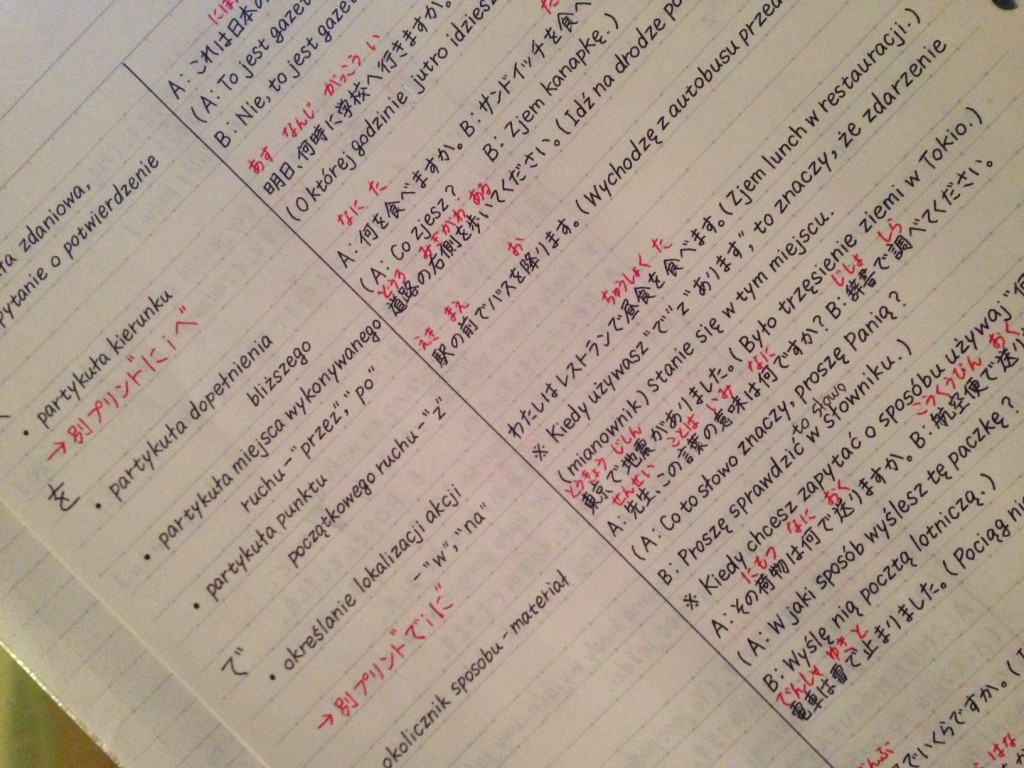 zdaniowa,
pytanie o potwierdzenie
• partykuła kierunku
→ 別プリント"に i へ"
を
• partykuła dopełnienia
bliższego
• partykuła miejsca wykonywanego
ruchu - "przez", "po"
• partykuła punktu
początkowego ruchu - "z"
で
• określanie lokalizacji akcji
- "w", "na"
→ 別プリント"で i に"
okolicznik sposobu - materiał
A: これは日本の
(A: To jest gazet
B: Nie, to jest gazet
あす なんじ がっこう い
明日、何時に学校へ行きますか。
(O której godzinie jutro idziesz
なに た
A: 何を食べますか。 B: サンドイッチを食べ
(A: Co zjesz? B: Zjem kanapkę.)
どうろ みぎがわ ある
道路の右側を歩いてください。(Idź na drodze po
えき まえ お
駅の前でバスを降ります。(Wychodzę z autobusu przed
ちゅうしょく た
わたしはレストランで昼食を食べます。(Zjem lunch w restauracji.)
※ Kiedy używasz "で" z "あります", to znaczy, że zdarzenie
(mianownik) stanie się w tym miejscu.
とうきょう じしん
東京で地震がありました。(Było trzęsienie ziemi w Tokio.)
せんせい ことば いみ なに じしょ しら
A: 先生、この言葉の意味は何ですか? B: 辞書で調べてください。
(A: Co to słowo znaczy, proszę Panią?
B: Proszę sprawdzić to słowo w słowniku.)
※ Kiedy chcesz zapytać o sposób używaj "何
にもつ なに おく こうくうびん おく
A: その荷物は何で送りますか。 B: 航空便で送り
(A: W jaki sposób wyślesz tę paczkę?
B: Wyślę nią pocztą lotniczą.)
でんしゃ ゆき と
電車は雪で止まりました。(Pociąg ni
でいくらですか。(I